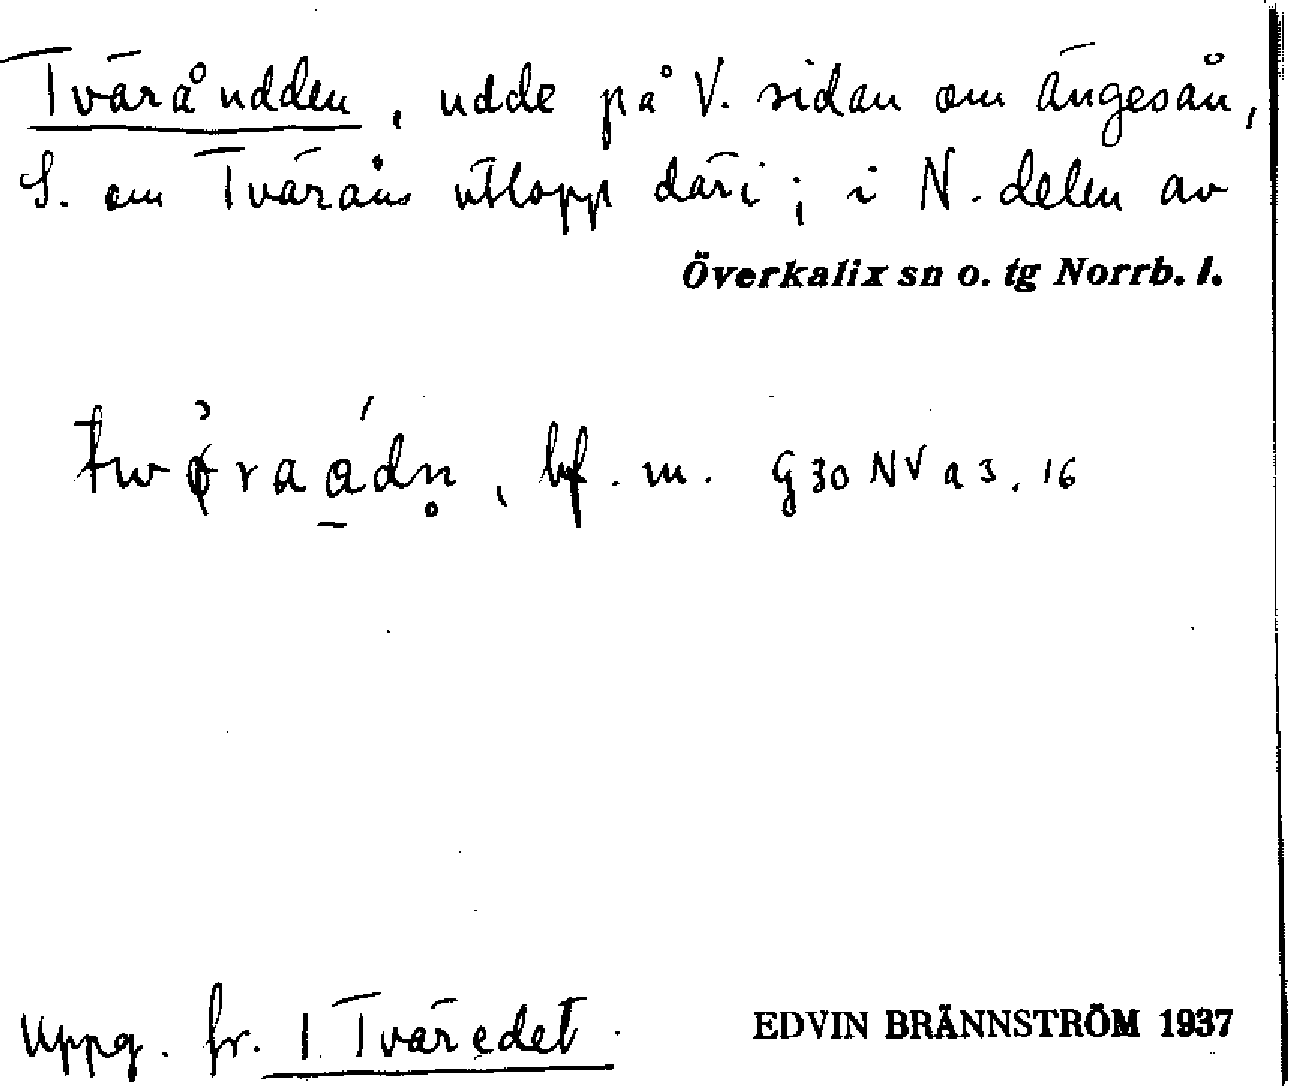 Tväråudden, udde på V. sidan om Ängesån,
S. om Tväråns utlopp däri; i N. delen av
Överkalix sn o. tg Norrb. l.
bf. m. G 30 NV a 3. 16
Uppg. fr. 1 Tväredet.
EDVIN BRÄNNSTRÖM 1937